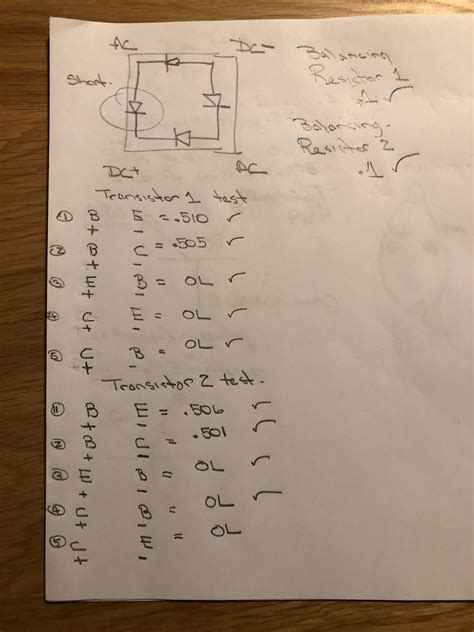 AC DC-
Short.
DC+ AC
Balancing
Resistor 1
.1 ✓
Balancing
Resistor 2
.1 ✓
Transistor 1 test
① B + E - = .510 ✓
② B + C - = .505 ✓
③ E + B - = OL ✓
④ C + E - = OL ✓
⑤ C + B - = OL ✓
Transistor 2 test.
① B + E - = .506 ✓
② B + C - = .501 ✓
③ E + B - = OL ✓
④ C + B - = OL ✓
⑤ C + E - = OL